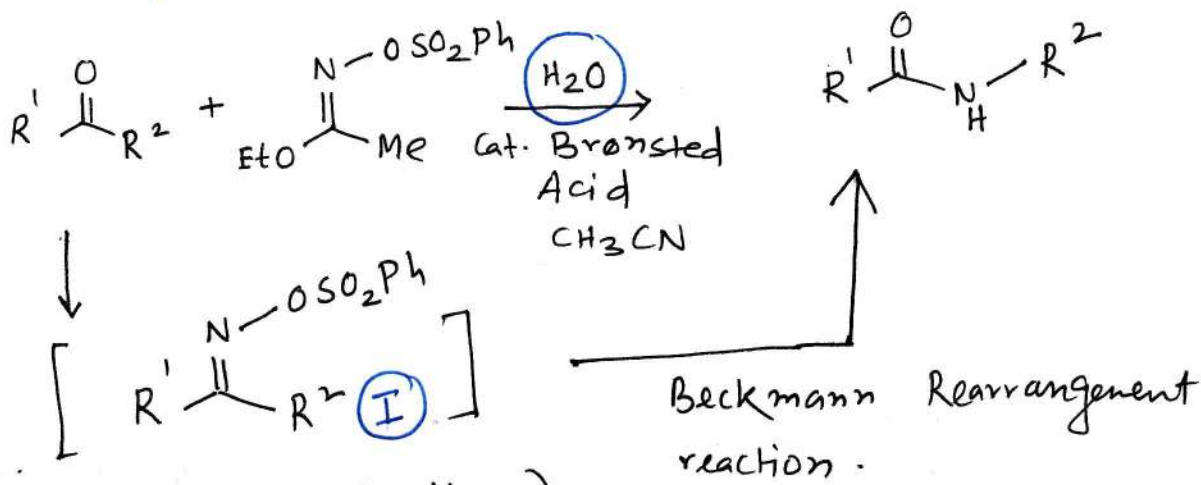 O
R' R² + N OSO₂Ph EtO Me H₂O O R' N H R²
Cat. Brønsted
Acid
CH₃CN
[ N OSO₂Ph R' R² I ]
Beckmann Rearrangement
reaction.